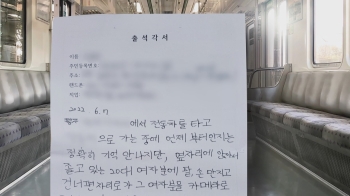 출 석 각 서
이름
주민등록번호
주소
핸드폰
직업
2022 6. 17
에서 전동차를 타고
으로 가는 중에 언제 부터인지는
정확히 기억 안나지만, 옆자리에 앉아서
졸고 있는 20대 여자분에 팔, 손 만지고
건너편 자리로가 그 여자분을 카메라로